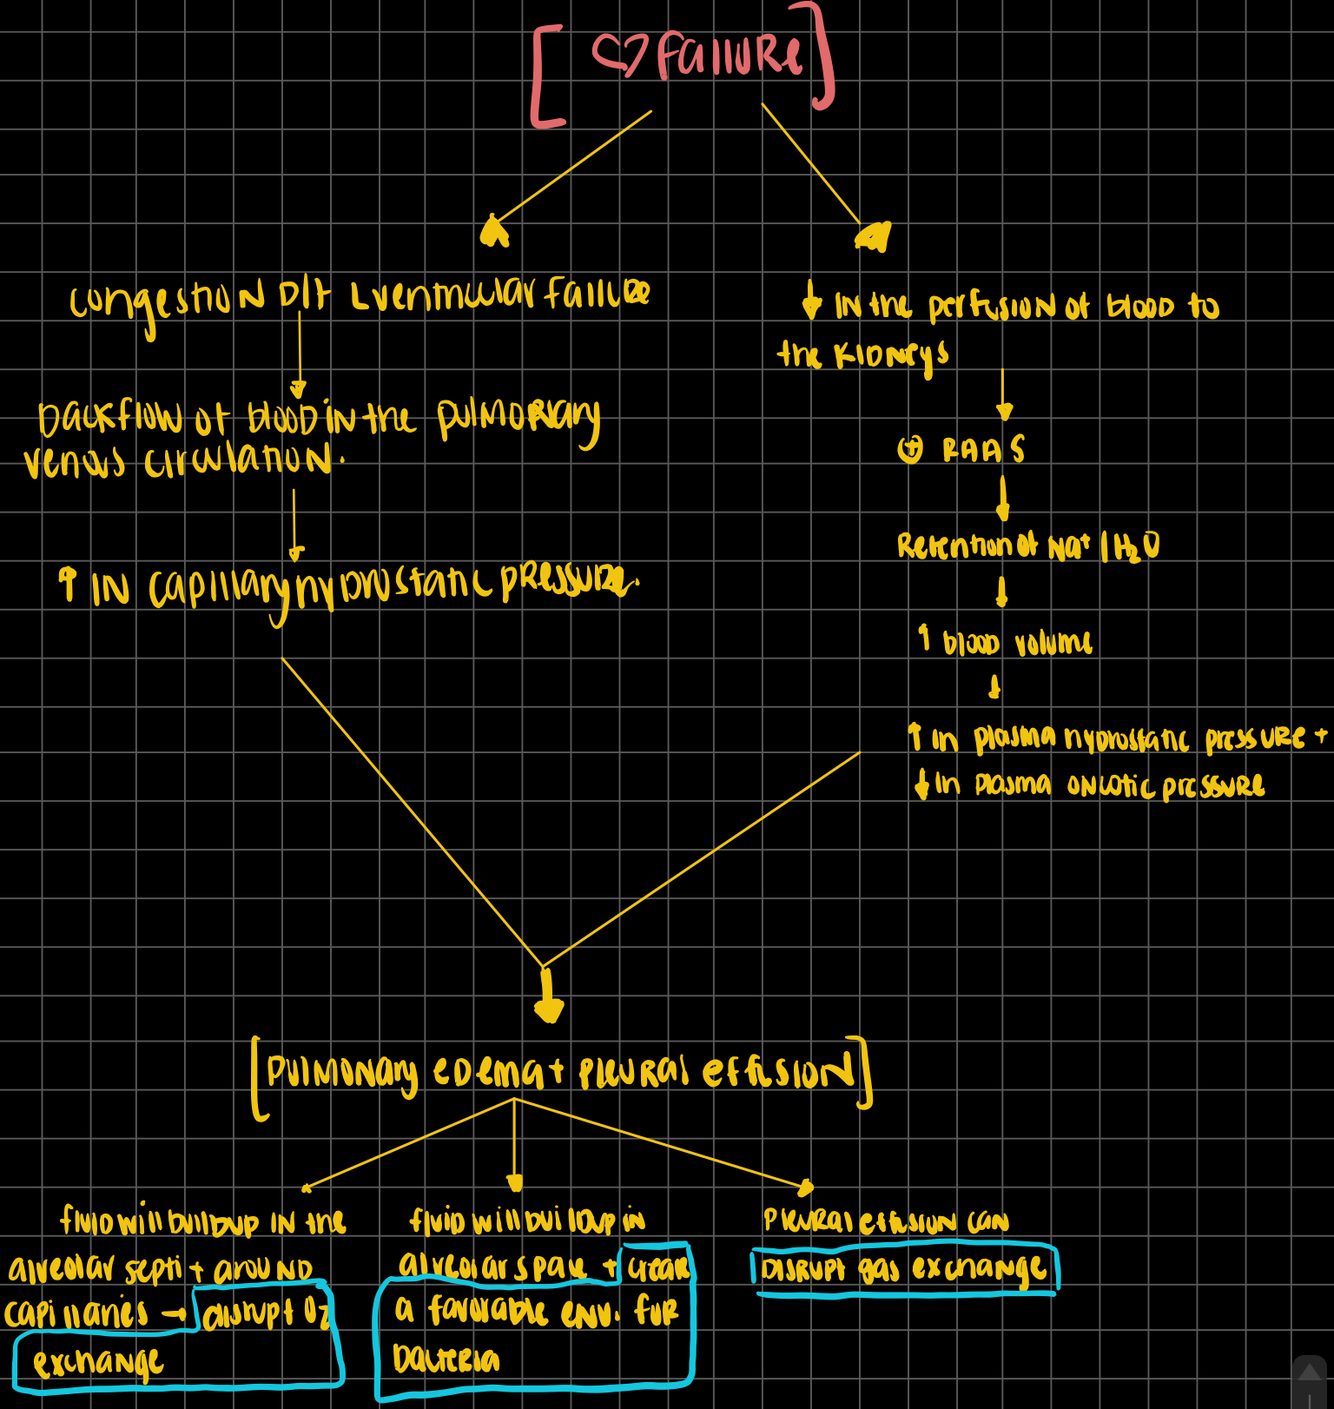 [ ♡ failure ]
congestion D/t L ventricular failure
backflow of blood in the pulmonary
venous circulation.
↑ in capillary hydrostatic pressure.
↓ in the perfusion of blood to
the kidneys
⊕ RAAS
Retention of Na+ / H2O
↑ blood volume
↑ in plasma hydrostatic pressure +
↓ in plasma oncotic pressure
[pulmonary edema + pleural effusion]
fluid will buildup in the
alveolar septi + around
capillaries → disrupt O2
exchange
fluid will buildup in
alveolar space + create
a favorable env. for
bacteria
pleural effusion can
disrupt gas exchange